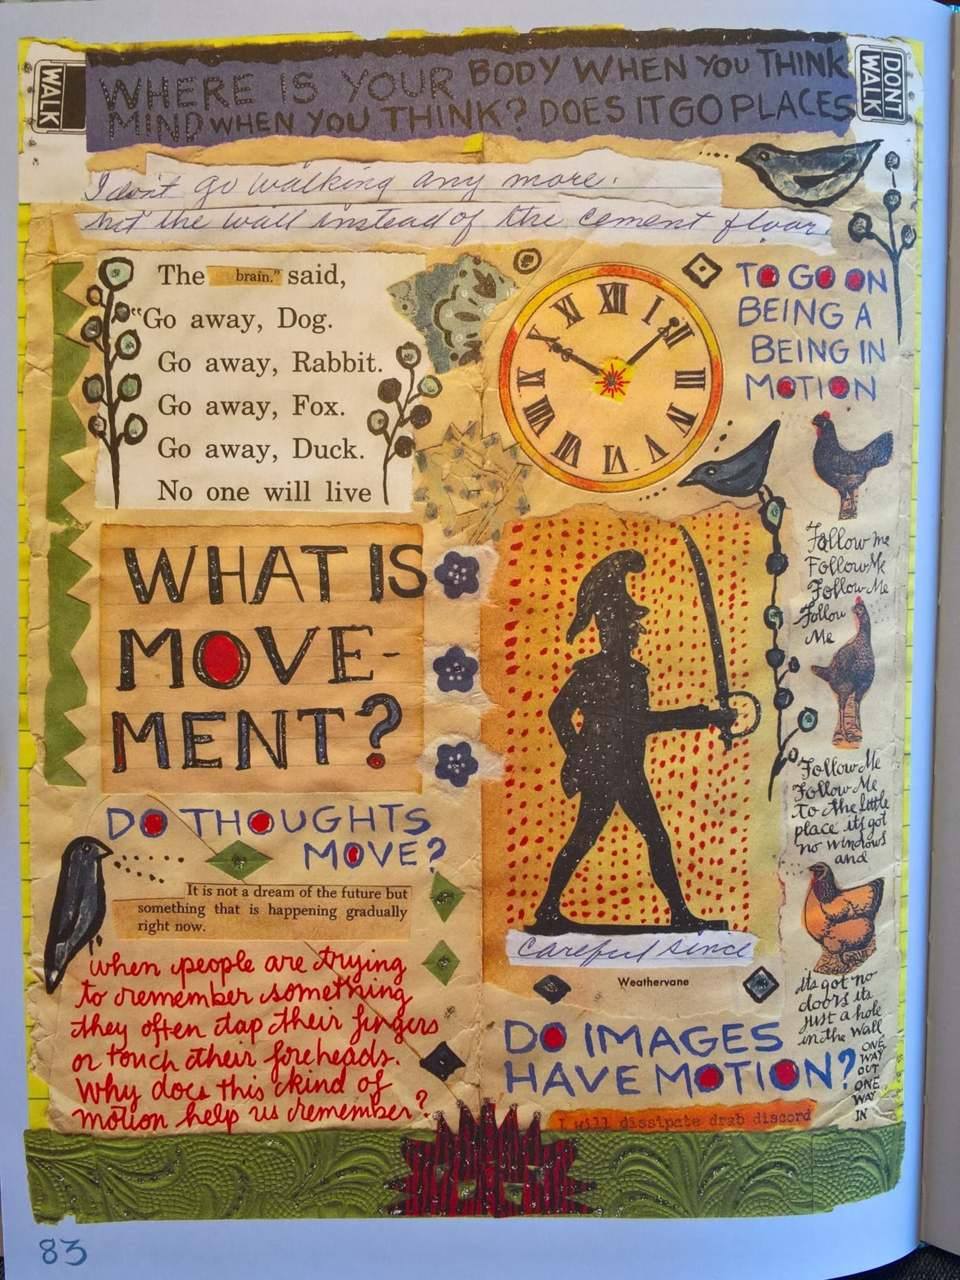 WALK
WHERE IS YOUR BODY WHEN YOU THINK
MIND WHEN YOU THINK? DOES IT GO PLACES
DONT
WALK
I don't go walking any more.
hit the wall instead of the cement floor.
The brain." said,
"Go away, Dog.
Go away, Rabbit.
Go away, Fox.
Go away, Duck.
No one will live
XII
I
III
V
VI
VII
VIII
IX
X
XI
TO GO ON
BEING A
BEING IN
MOTION
WHAT IS
MOVE-
MENT?
Follow me
Follow Me
Follow Me
Follow
Me
Follow Me
Follow Me
To the little
place its got
no windows
and
its got no
doors its
just a hole
in the wall
ONE
WAY
OUT
ONE
WAY
IN
DO THOUGHTS
MOVE?
It is not a dream of the future but
something that is happening gradually
right now.
when people are trying
to remember something
they often tap their fingers
or touch their foreheads.
Why does this kind of
motion help us remember?
Careful since
Weathervane
DO IMAGES
HAVE MOTION?
I will dissipate drab discord
83